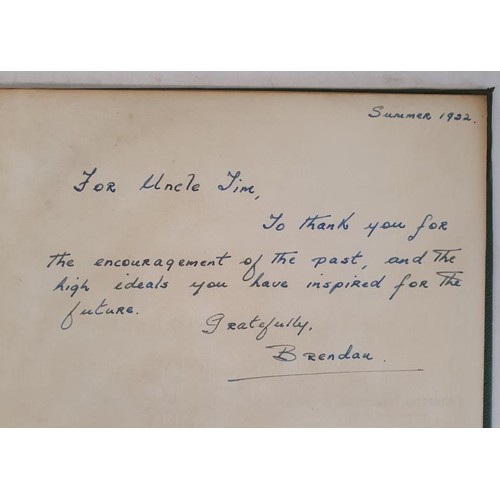 Summer 1922.
For Uncle Jim,
To thank you for
the encouragement of the past, and the
high ideals you have inspired for the
future.
Gratefully,
Brendan.